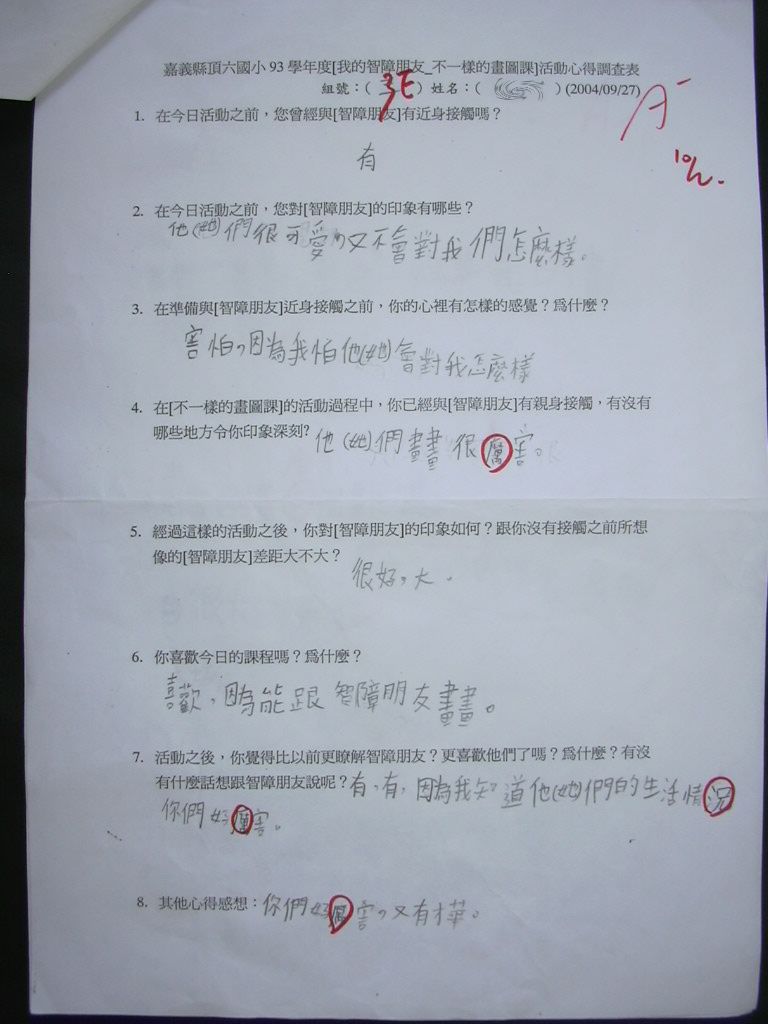 嘉義縣頂六國小 93 學年度[我的智障朋友_不一樣的畫圖課]活動心得調查表
組號：( 3E ) 姓名：( ) (2004/09/27)
A-
10/2.
1. 在今日活動之前，您曾經與[智障朋友]有近身接觸嗎？
有
2. 在今日活動之前，您對[智障朋友]的印象有哪些？
他(她)們很可愛，又不會對我們怎麼樣。
3. 在準備與[智障朋友]近身接觸之前，你的心裡有怎樣的感覺？爲什麼？
害怕，因為我怕他(她)會對我怎麼樣
4. 在[不一樣的畫圖課]的活動過程中，你已經與[智障朋友]有親身接觸，有沒有
哪些地方令你印象深刻? 他(她)們畫畫很厲害。
5. 經過這樣的活動之後，你對[智障朋友]的印象如何？跟你沒有接觸之前所想
像的[智障朋友]差距大不大？
很好，大。
6. 你喜歡今日的課程嗎？爲什麼？
喜歡，因為能跟智障朋友畫畫。
7. 活動之後，你覺得比以前更瞭解智障朋友？更喜歡他們了嗎？爲什麼？有沒
有什麼話想跟智障朋友說呢？有，有，因為我知道他(她)們的生活情況
你們好厲害。
8. 其他心得感想：你們好厲害，又有才華。